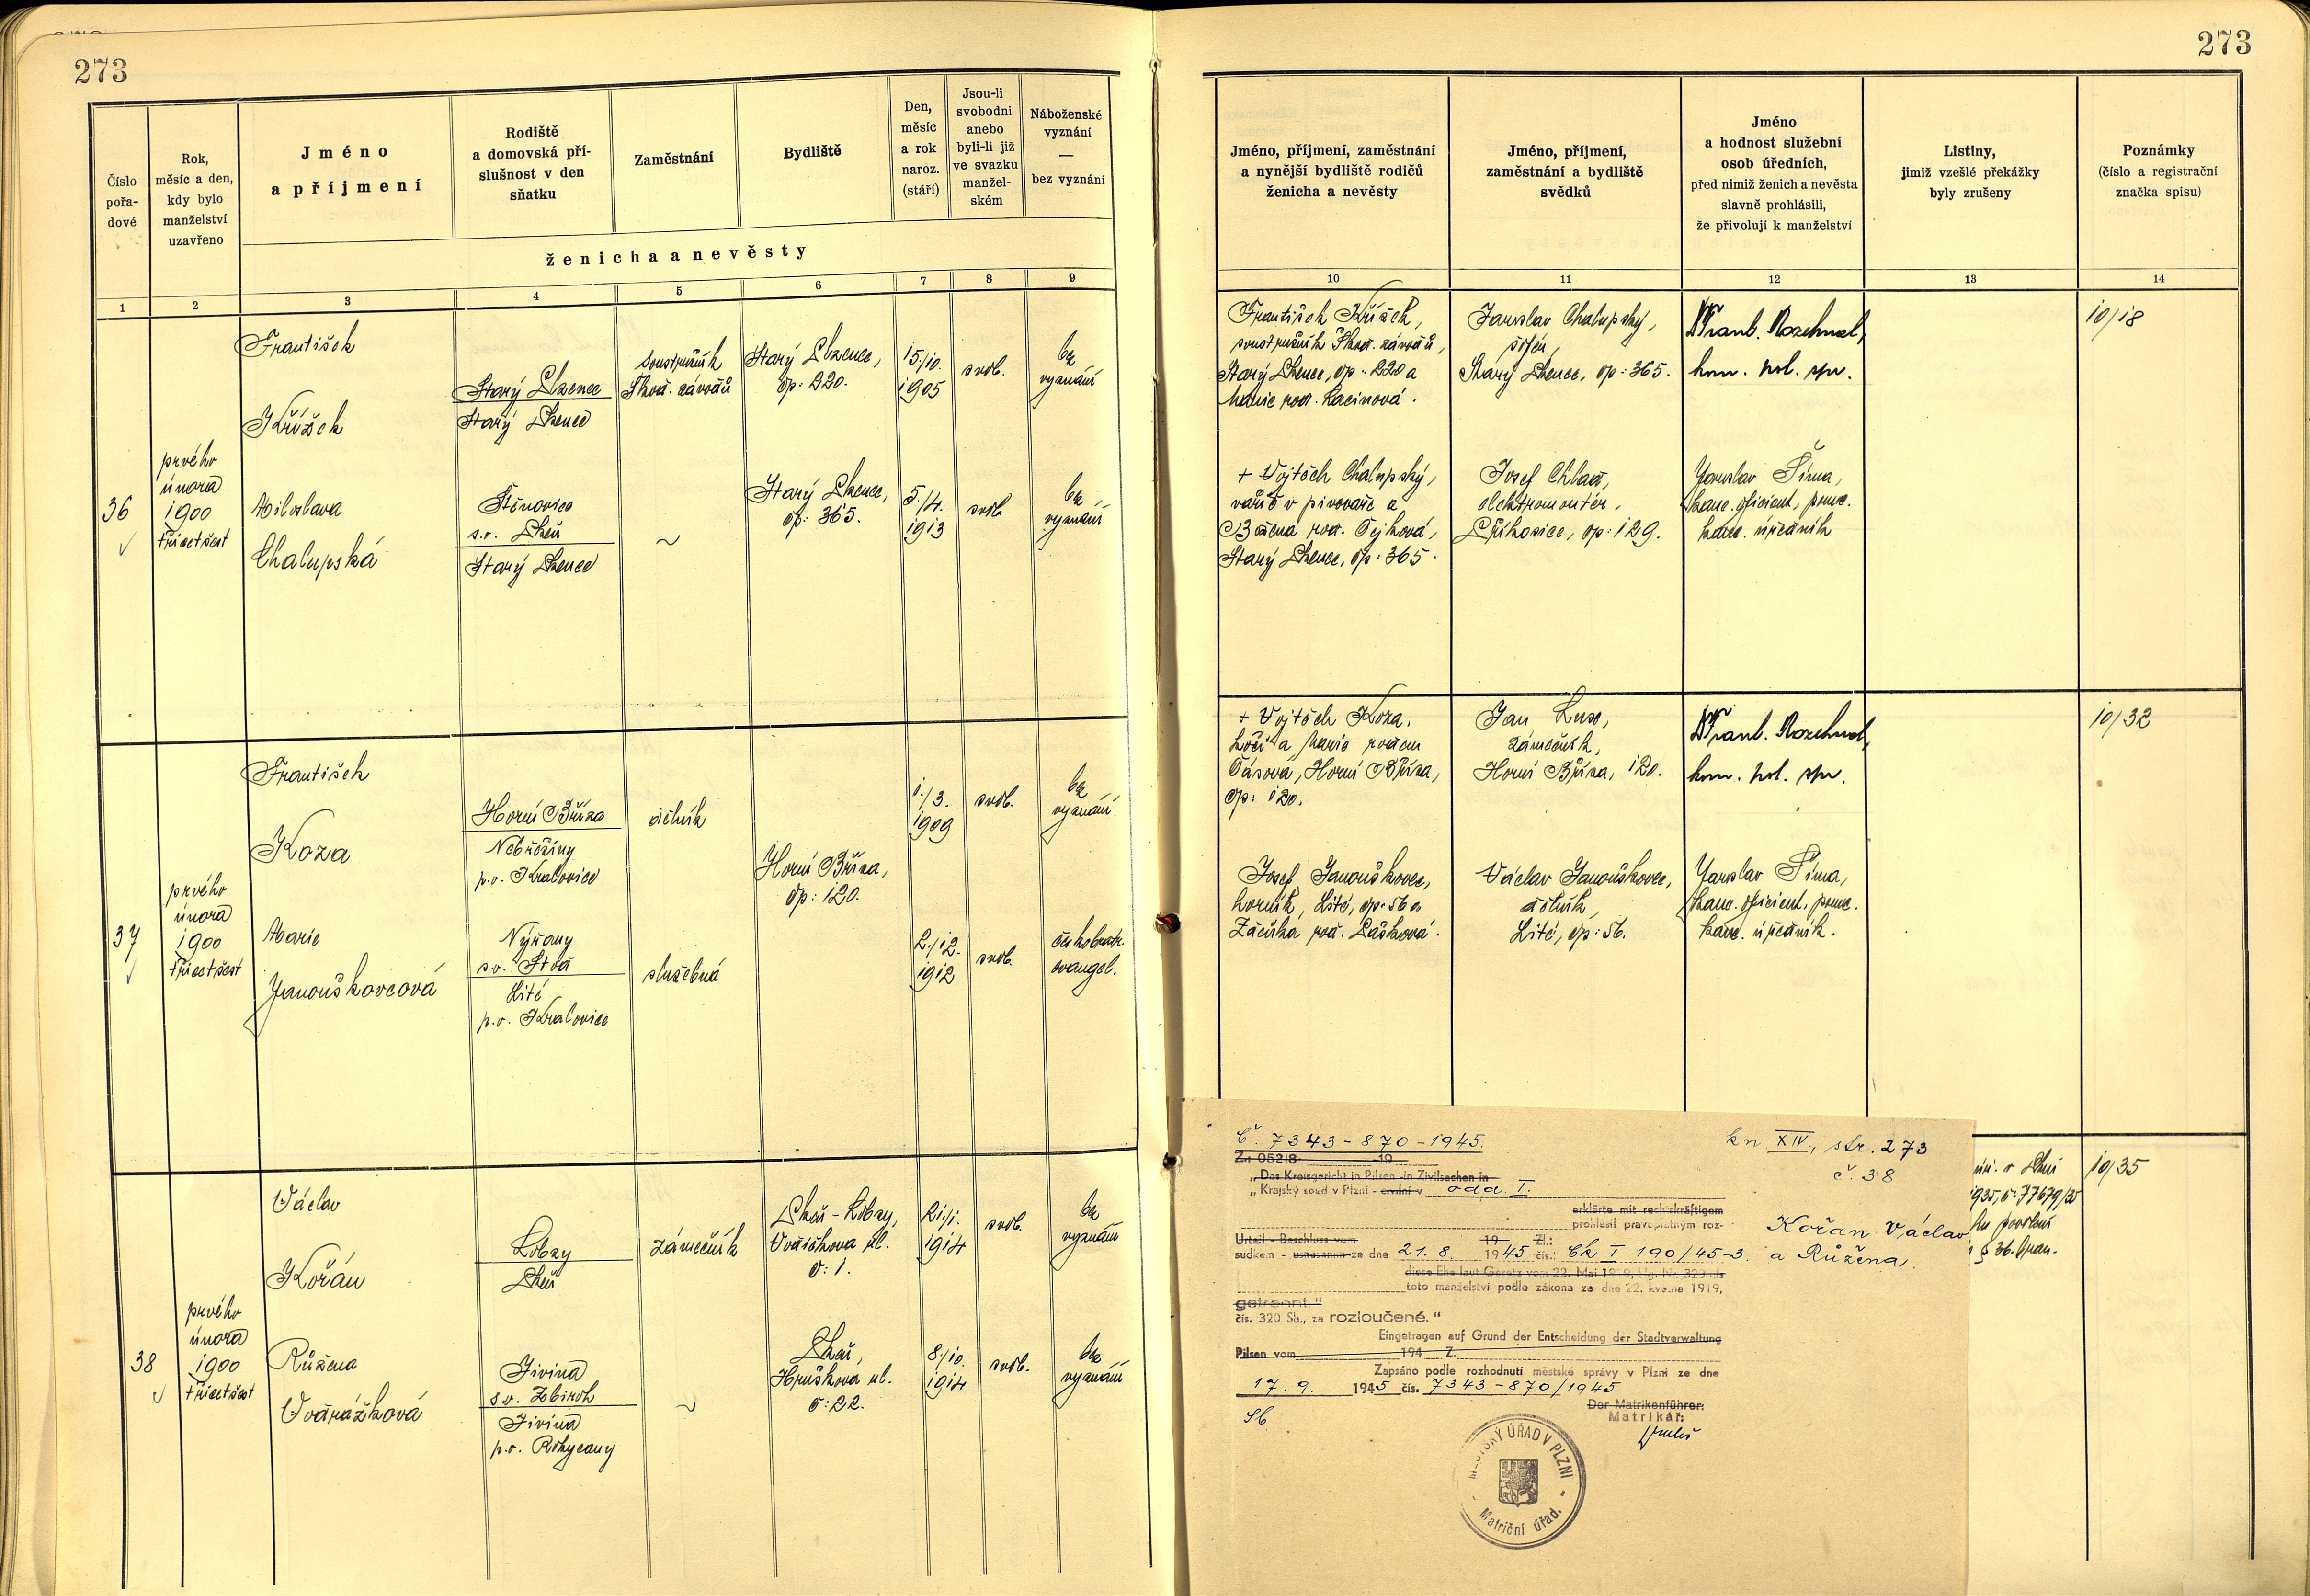 273
Číslo
pořa-
dové
Rok,
měsíc a den,
kdy bylo
manželství
uzavřeno
Jméno
a příjmení
Rodiště
a domovská pří-
slušnost v den
sňatku
Zaměstnání
Bydliště
Den,
měsíc
a rok
naroz.
(stáří)
Jsou-li
svobodni
anebo
byli-li již
ve svazku
manžel-
ském
Náboženské
vyznání
—
bez vyznání
ženicha a nevěsty
1 2 3 4 5 6 7 8 9
36
prvého
února
1900
třicetšest
František
Křížek
Starý Plzenec
Starý Plzenec
soustružník
Škod. závodů
Starý Plzenec,
čp: 220.
15./10.
1905
svob.
bez
vyznání
Miloslava
Chalupská
Štěnovice
s.o. Plzeň
Starý Plzenec
~
Starý Plzenec,
čp: 365.
5./4.
1913
svob.
bez
vyznání
37
prvého
února
1900
třicetšest
František
Koza
Horní Bříza
Nebřeziny
p.o. Kralovice
dělník
Horní Bříza,
čp: 120.
1./3.
1909
svob.
bez
vyznání
Marie
Janouškovcová
Nýřany
s.o. Stod
Lité
p.o. Kralovice
služebná
2./12.
1912
svob.
českobratr.
evangel.
38
prvého
února
1900
třicetšest
Václav
Kořán
Lobzy
Plzeň
zámečník
Plzeň - Lobzy,
č: 1.
21./1.
1914
svob.
bez
vyznání
Růžena
Dvořáková
Jivina
s.o. Zbiroh
Jivina
p.o. Rokycany
~
Plzeň,
Hruškova ul.
č: 22.
8./10.
1914
svob.
bez
vyznání
273
Jméno, příjmení, zaměstnání
a nynější bydliště rodičů
ženicha a nevěsty
Jméno, příjmení,
zaměstnání a bydliště
svědků
Jméno
a hodnost služební
osob úředních,
před nimiž ženich a nevěsta
slavně prohlásili,
že přivolují k manželství
Listiny,
jimiž vzešlé překážky
byly zrušeny
Poznámky
(číslo a registrační
značka spisu)
10 11 12 13 14
František Křížek,
soustružník Škod. závodů,
Starý Plzenec, čp: 220 a
Marie roz. Lacinová.
Jaroslav Chalupský,
šofér,
Starý Plzenec, čp: 365.
kom. pol. spr.
10/18
+ Vojtěch Chalupský,
vařič v pivovaře a
Božena roz. Čejková,
Starý Plzenec, čp: 365.
Josef Chlad,
elektromontér,
čp: 129.
Jaroslav Šíma,
kanc. oficient, pomc.
kanc. úředník
+ Vojtěch Koza,
kočí a Marie rozen
Čásová, Horní Bříza,
čp: 120.
Jan
zámečník,
Horní Bříza, 120.
kom. pol. spr.
10/32
Josef Janouškovec,
horník, Lité, čp: 56 a
roz. Lašková.
Václav Janouškovec,
dělník,
Lité, čp: 56.
Jaroslav Šíma,
kanc. oficient, pomc.
kanc. úředník.
Č. 7343-870-1945.
kn. XIV., str. 273
č. 38
Z.: 05218 19
„Das Kreisgericht in Pilsen in Zivilsachen in
„Krajský soud v Plzni - civilní v odd. I.
erklärte mit rechtskräftigem
prohlásil pravoplatným roz-
Kořan Václav
a Růžena,
Urteil - Beschluss vom 19 Zl.:
sudkem - usnesením ze dne 21. 8. 1945 čís.: Ck I 190/45-3
diese Ehe laut Gesetz vom 22. Mai 1919, Slg. Nr. 320 als
toto manželství podle zákona ze dne 22. května 1919,
getrennt."
čís. 320 Sb., za rozloučené."
Eingetragen auf Grund der Entscheidung der Stadtverwaltung
Pilsen vom 194 Z.
Zapsáno podle rozhodnutí městské správy v Plzni ze dne
17. 9. 1945 čís. 7343-870/1945
Der Matrikenführer:
Matrikář:
Sb.
MĚSTSKÝ ÚŘAD V PLZNI
Matriční úřad.
10/35